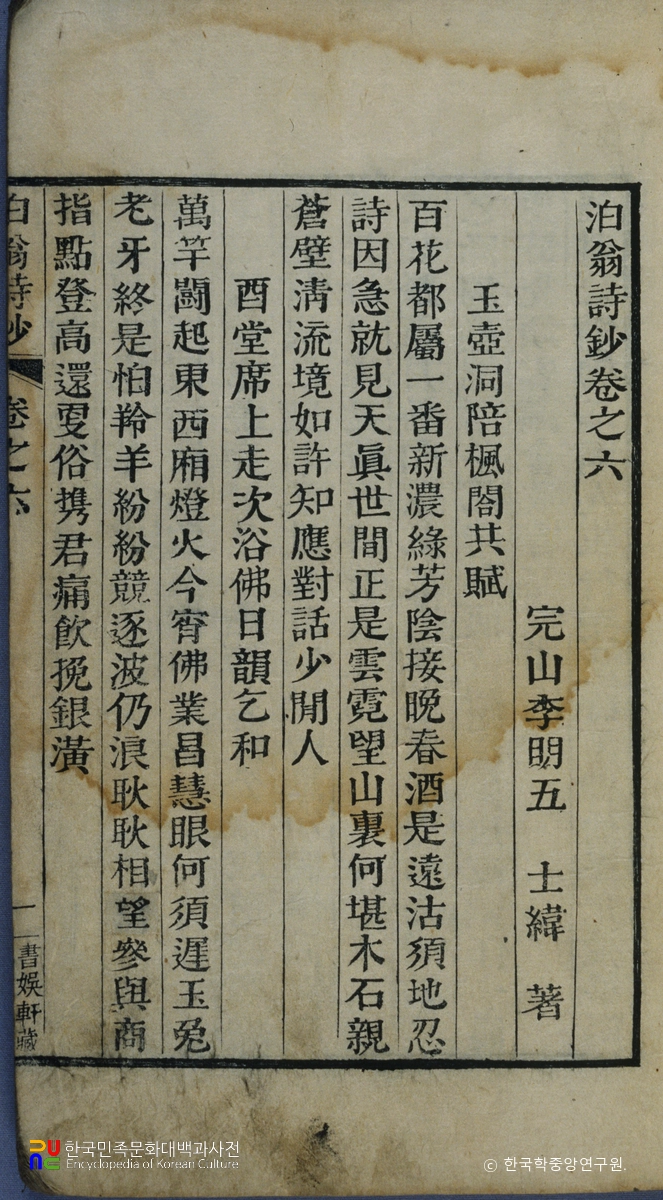 泊翁詩鈔卷之六
完山李明五 士緯 著
玉壺洞陪楓閣共賦
百花都屬一番新濃綠芳陰接晩春酒是遠沽須地忍
詩因急就見天眞世間正是雲霓望山裏何堪木石親
蒼壁淸流境如許知應對話少閒人
酉堂席上走次浴佛日韻乞和
萬竿鬪起東西廂燈火今宵佛業昌慧眼何須遲玉兔
老牙終是怕羚羊紛紛競逐波仍浪耿耿相望參與商
指點登高還叟俗携君痛飮挽銀潢
泊翁詩鈔 卷之六 一 書娛軒藏
한국민족문화대백과사전
Encyclopedia of Korean Culture
© 한국학중앙연구원.